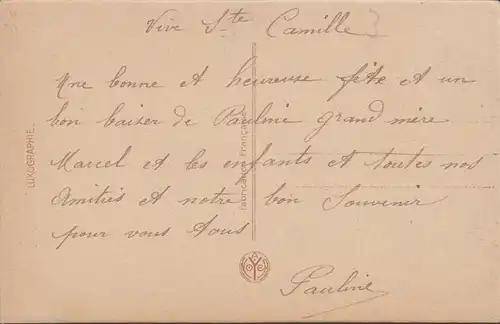 Vive Ste Camille
Une bonne et heureuse fête et un
bon baiser de Pauline grand mère
Marcel et les enfants et toutes nos
Amitiés et notre bon Souvenir
pour vous tous
Pauline
LUXOGRAPHIE
fabrication Française